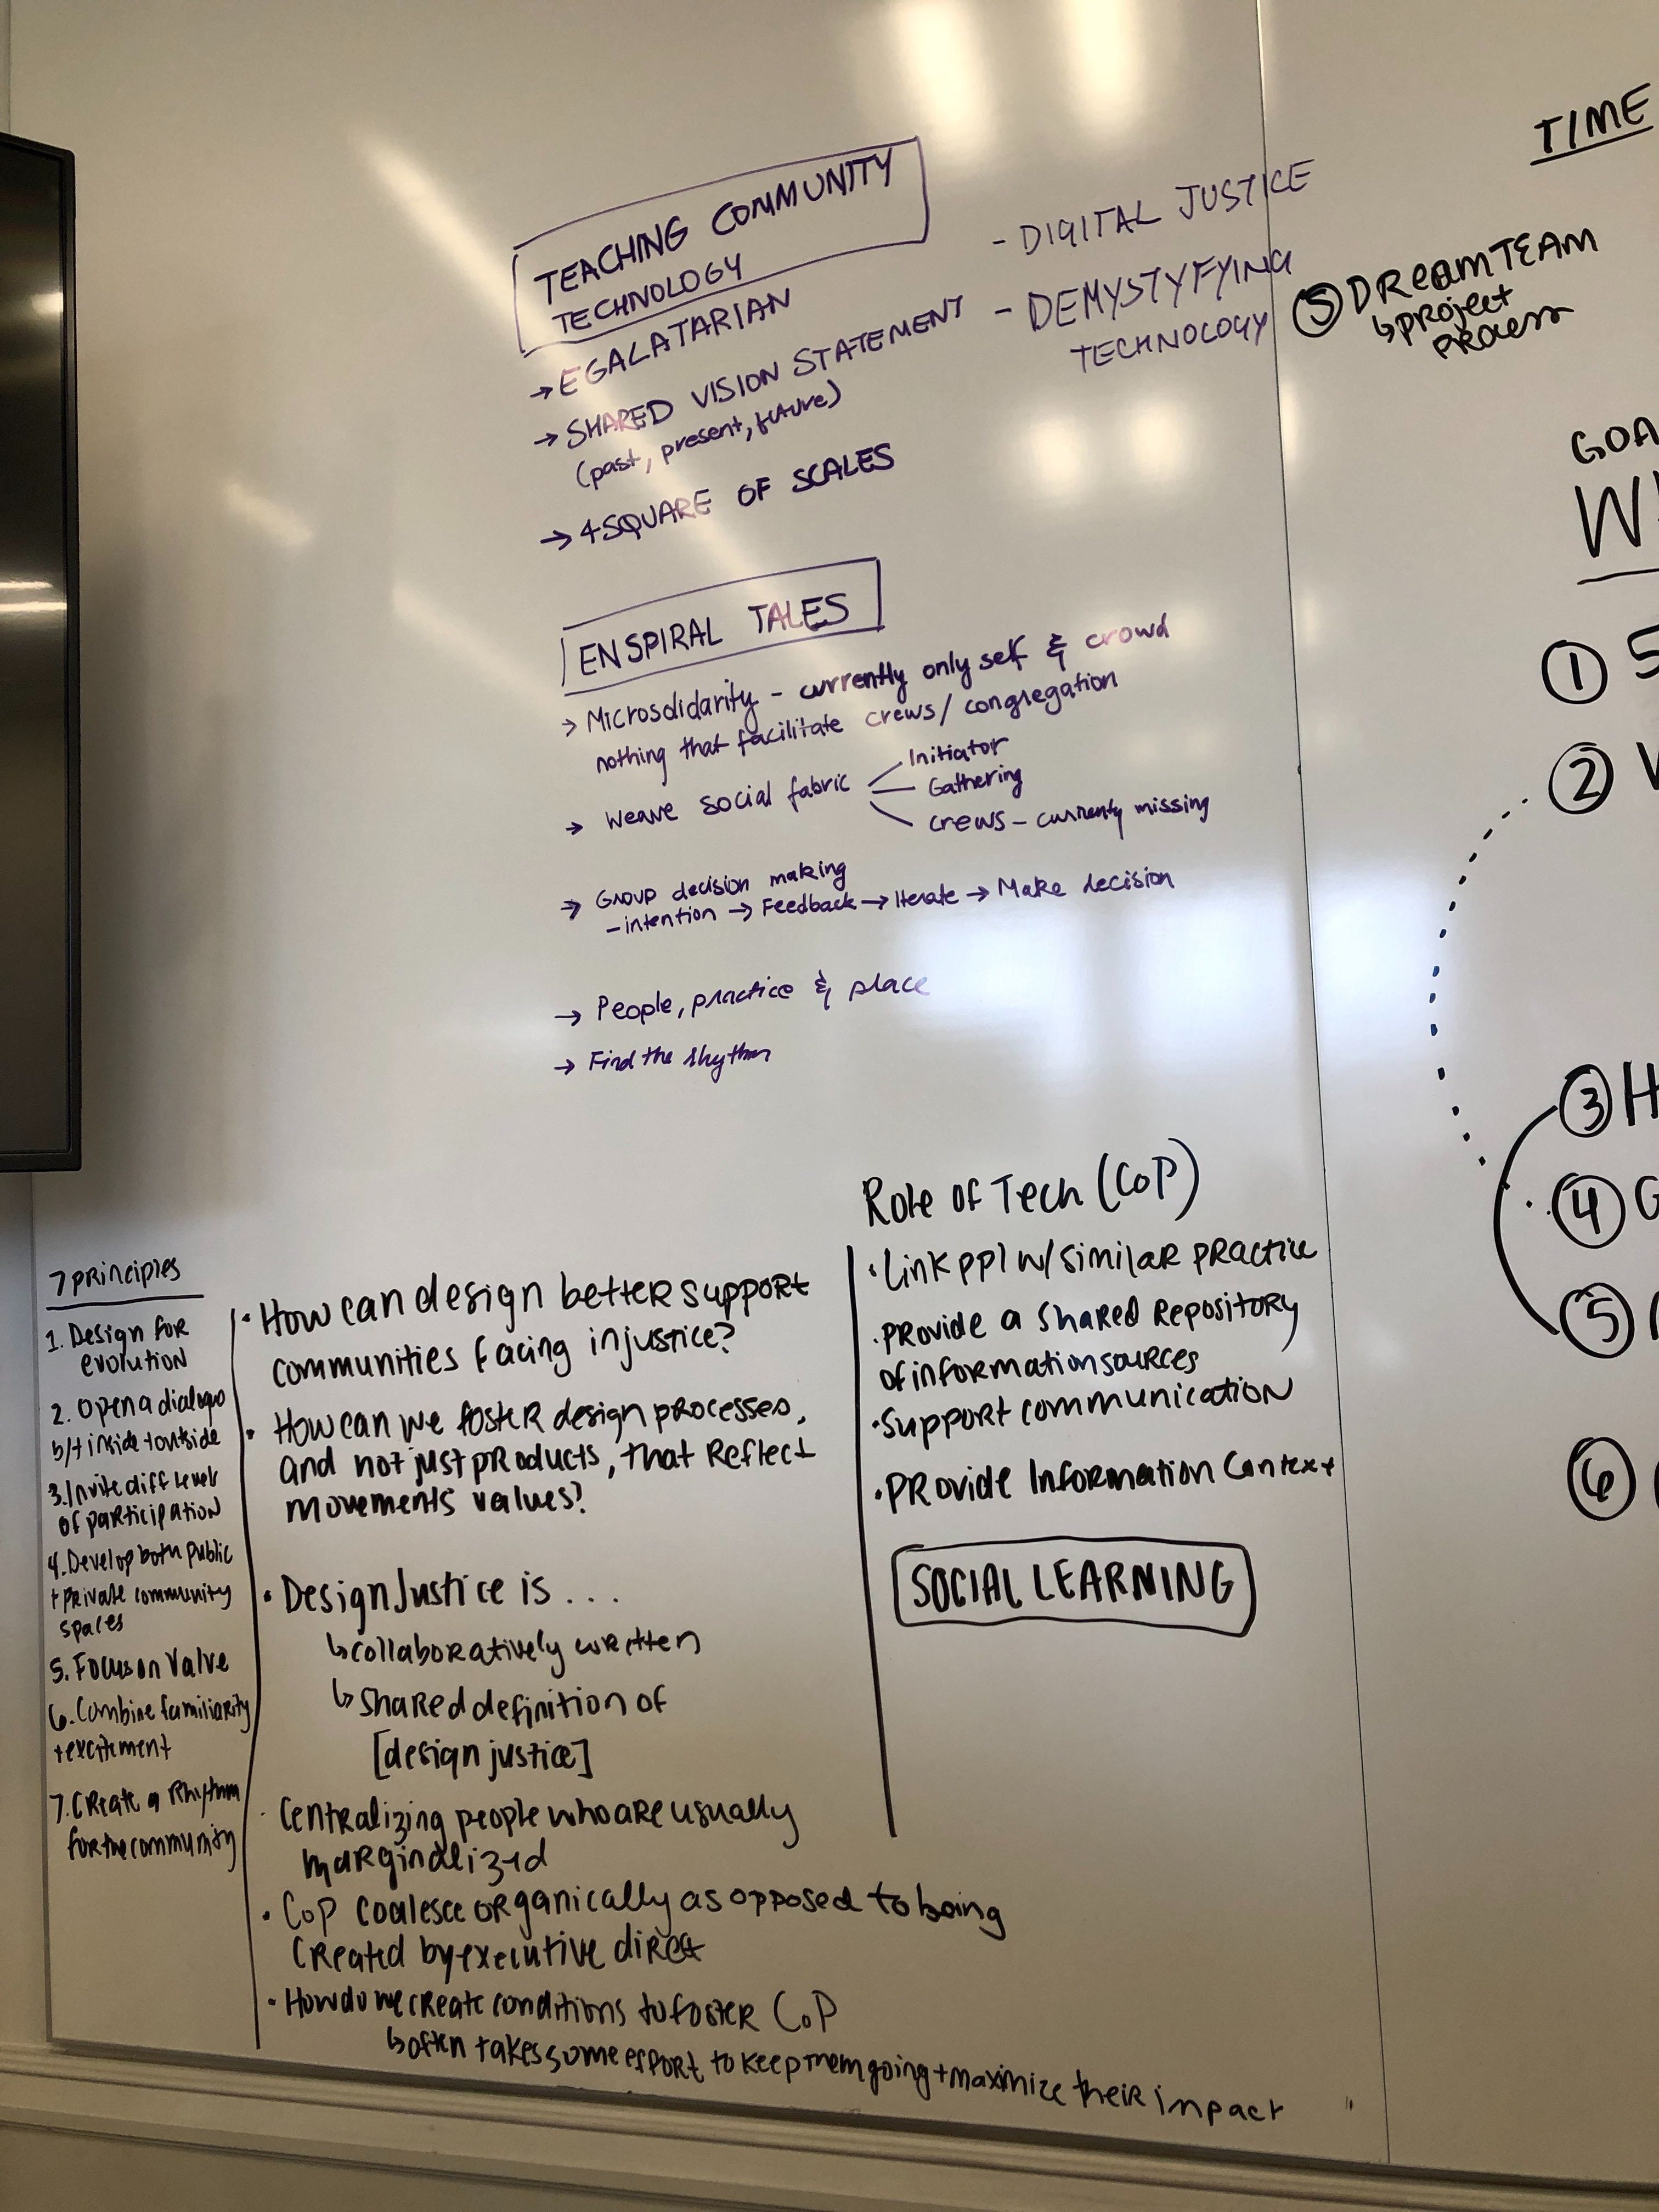 TEACHING COMMUNITY
TECHNOLOGY
→ EGALATARIAN
→ SHARED VISION STATEMENT
(past, present, future)
→ 4 SQUARE OF SCALES
- DIGITAL JUSTICE
- DEMYSTYFYING
TECHNOLOGY
ENSPIRAL TALES
> Microsolidarity - currently only self & crowd
nothing that facilitate crews/congregation
→ Weave social fabric
Initiator
Gathering
crews - currently missing
→ Group decision making
- intention → Feedback → Iterate → Make decision
→ People, practice & place
→ Find the rhythm
7 principles
1. Design for
evolution
2. Open a dialogue
b/t inside + outside
3. Invite diff level
of participation
4. Develop both public
+ private community
spaces
5. Focus on Value
6. Combine familiarity
+ excitement
7. Create a Rhythm
for the community
• How can design better support
communities facing injustice?
• How can we foster design processes,
and not just products, that reflect
movements values?
• Design Justice is ...
↳ collaboratively written
↳ shared definition of
[design justice]
• Centralizing people who are usually
marginalized
• CoP coalesce organically as opposed to being
created by executive direct
• How do we create conditions to foster CoP
↳ often takes some effort to keep them going + maximize their impact
Role of Tech (CoP)
• Link ppl w/ similar practice
• Provide a shared repository
of information sources
• Support communication
• Provide Information Context
SOCIAL LEARNING
TIME
⑤ DREAM TEAM
↳ project
process
GOA
W
① S
②
③ H
④ G
⑤
⑥